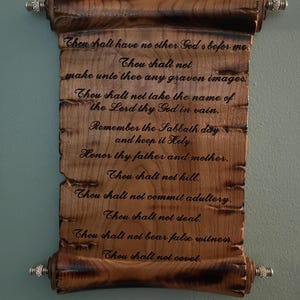 Thou shalt have no other God's before me.
Thou shalt not
make unto thee any graven images.
Thou shalt not take the name of
the Lord thy God in vain.
Remember the Sabbath day
and keep it Holy.
Honor thy father and mother.
Thou shalt not kill.
Thou shalt not commit adultery.
Thou shalt not steal.
Thou shalt not bear false witness.
Thou shalt not covet.